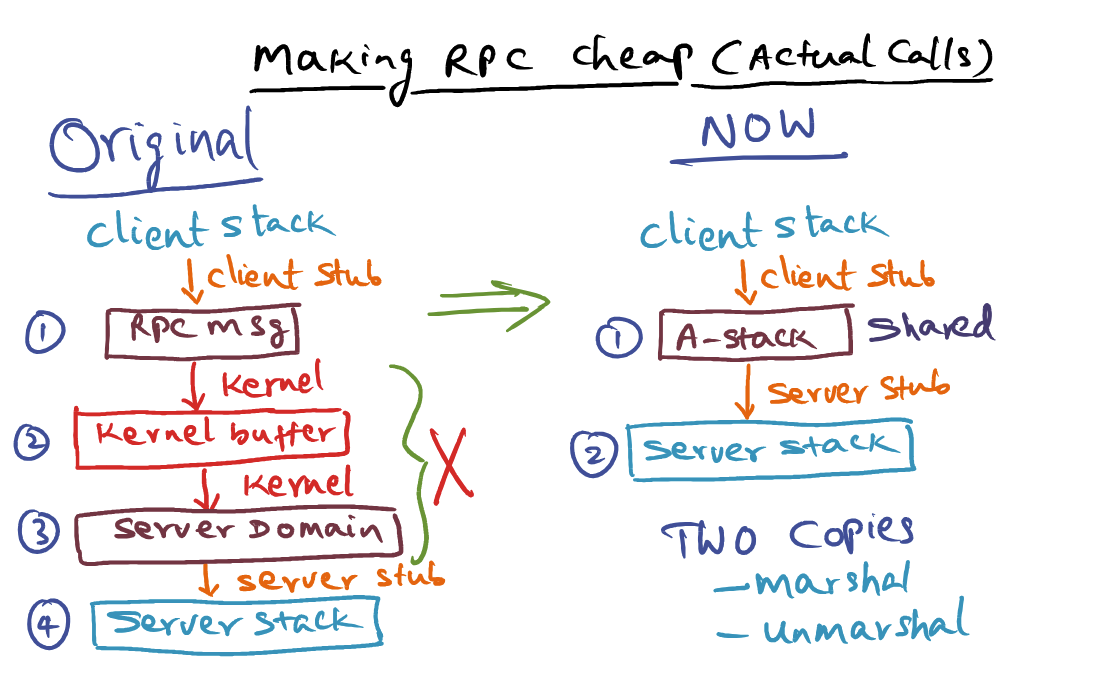 Making RPC cheap (Actual Calls)
Original
client stack
client stub
① RPC msg
Kernel
② Kernel buffer
Kernel
③ Server Domain
server stub
④ Server stack
X
NOW
client stack
client stub
① A-stack shared
server stub
② server stack
TWO Copies
- marshal
- unmarshal